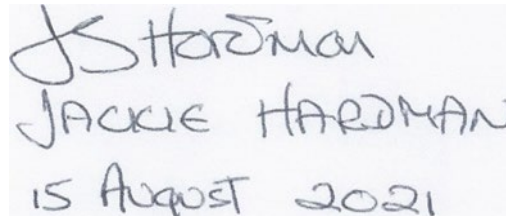 JS Hardman
JACKIE HARDMAN
15 AUGUST 2021